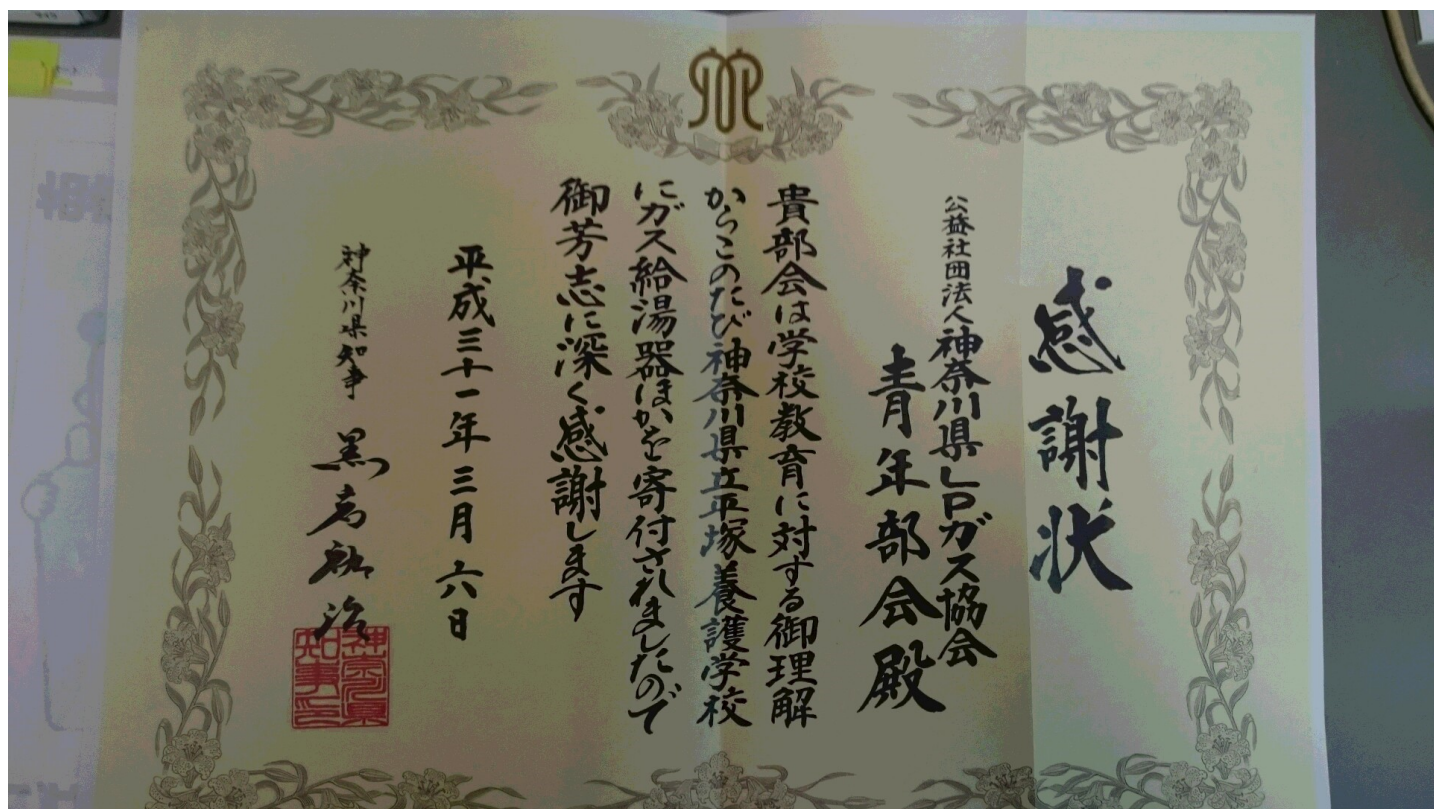 感謝状
公益社団法人神奈川県LPガス協会
青年部会殿
貴部会は学校教育に対する御理解
からこのたび神奈川県立平塚養護学校
にガス給湯器ほかを寄付されましたので
御芳志に深く感謝します
平成三十一年三月六日
神奈川県知事 黒岩祐治
神奈川県
知事之印